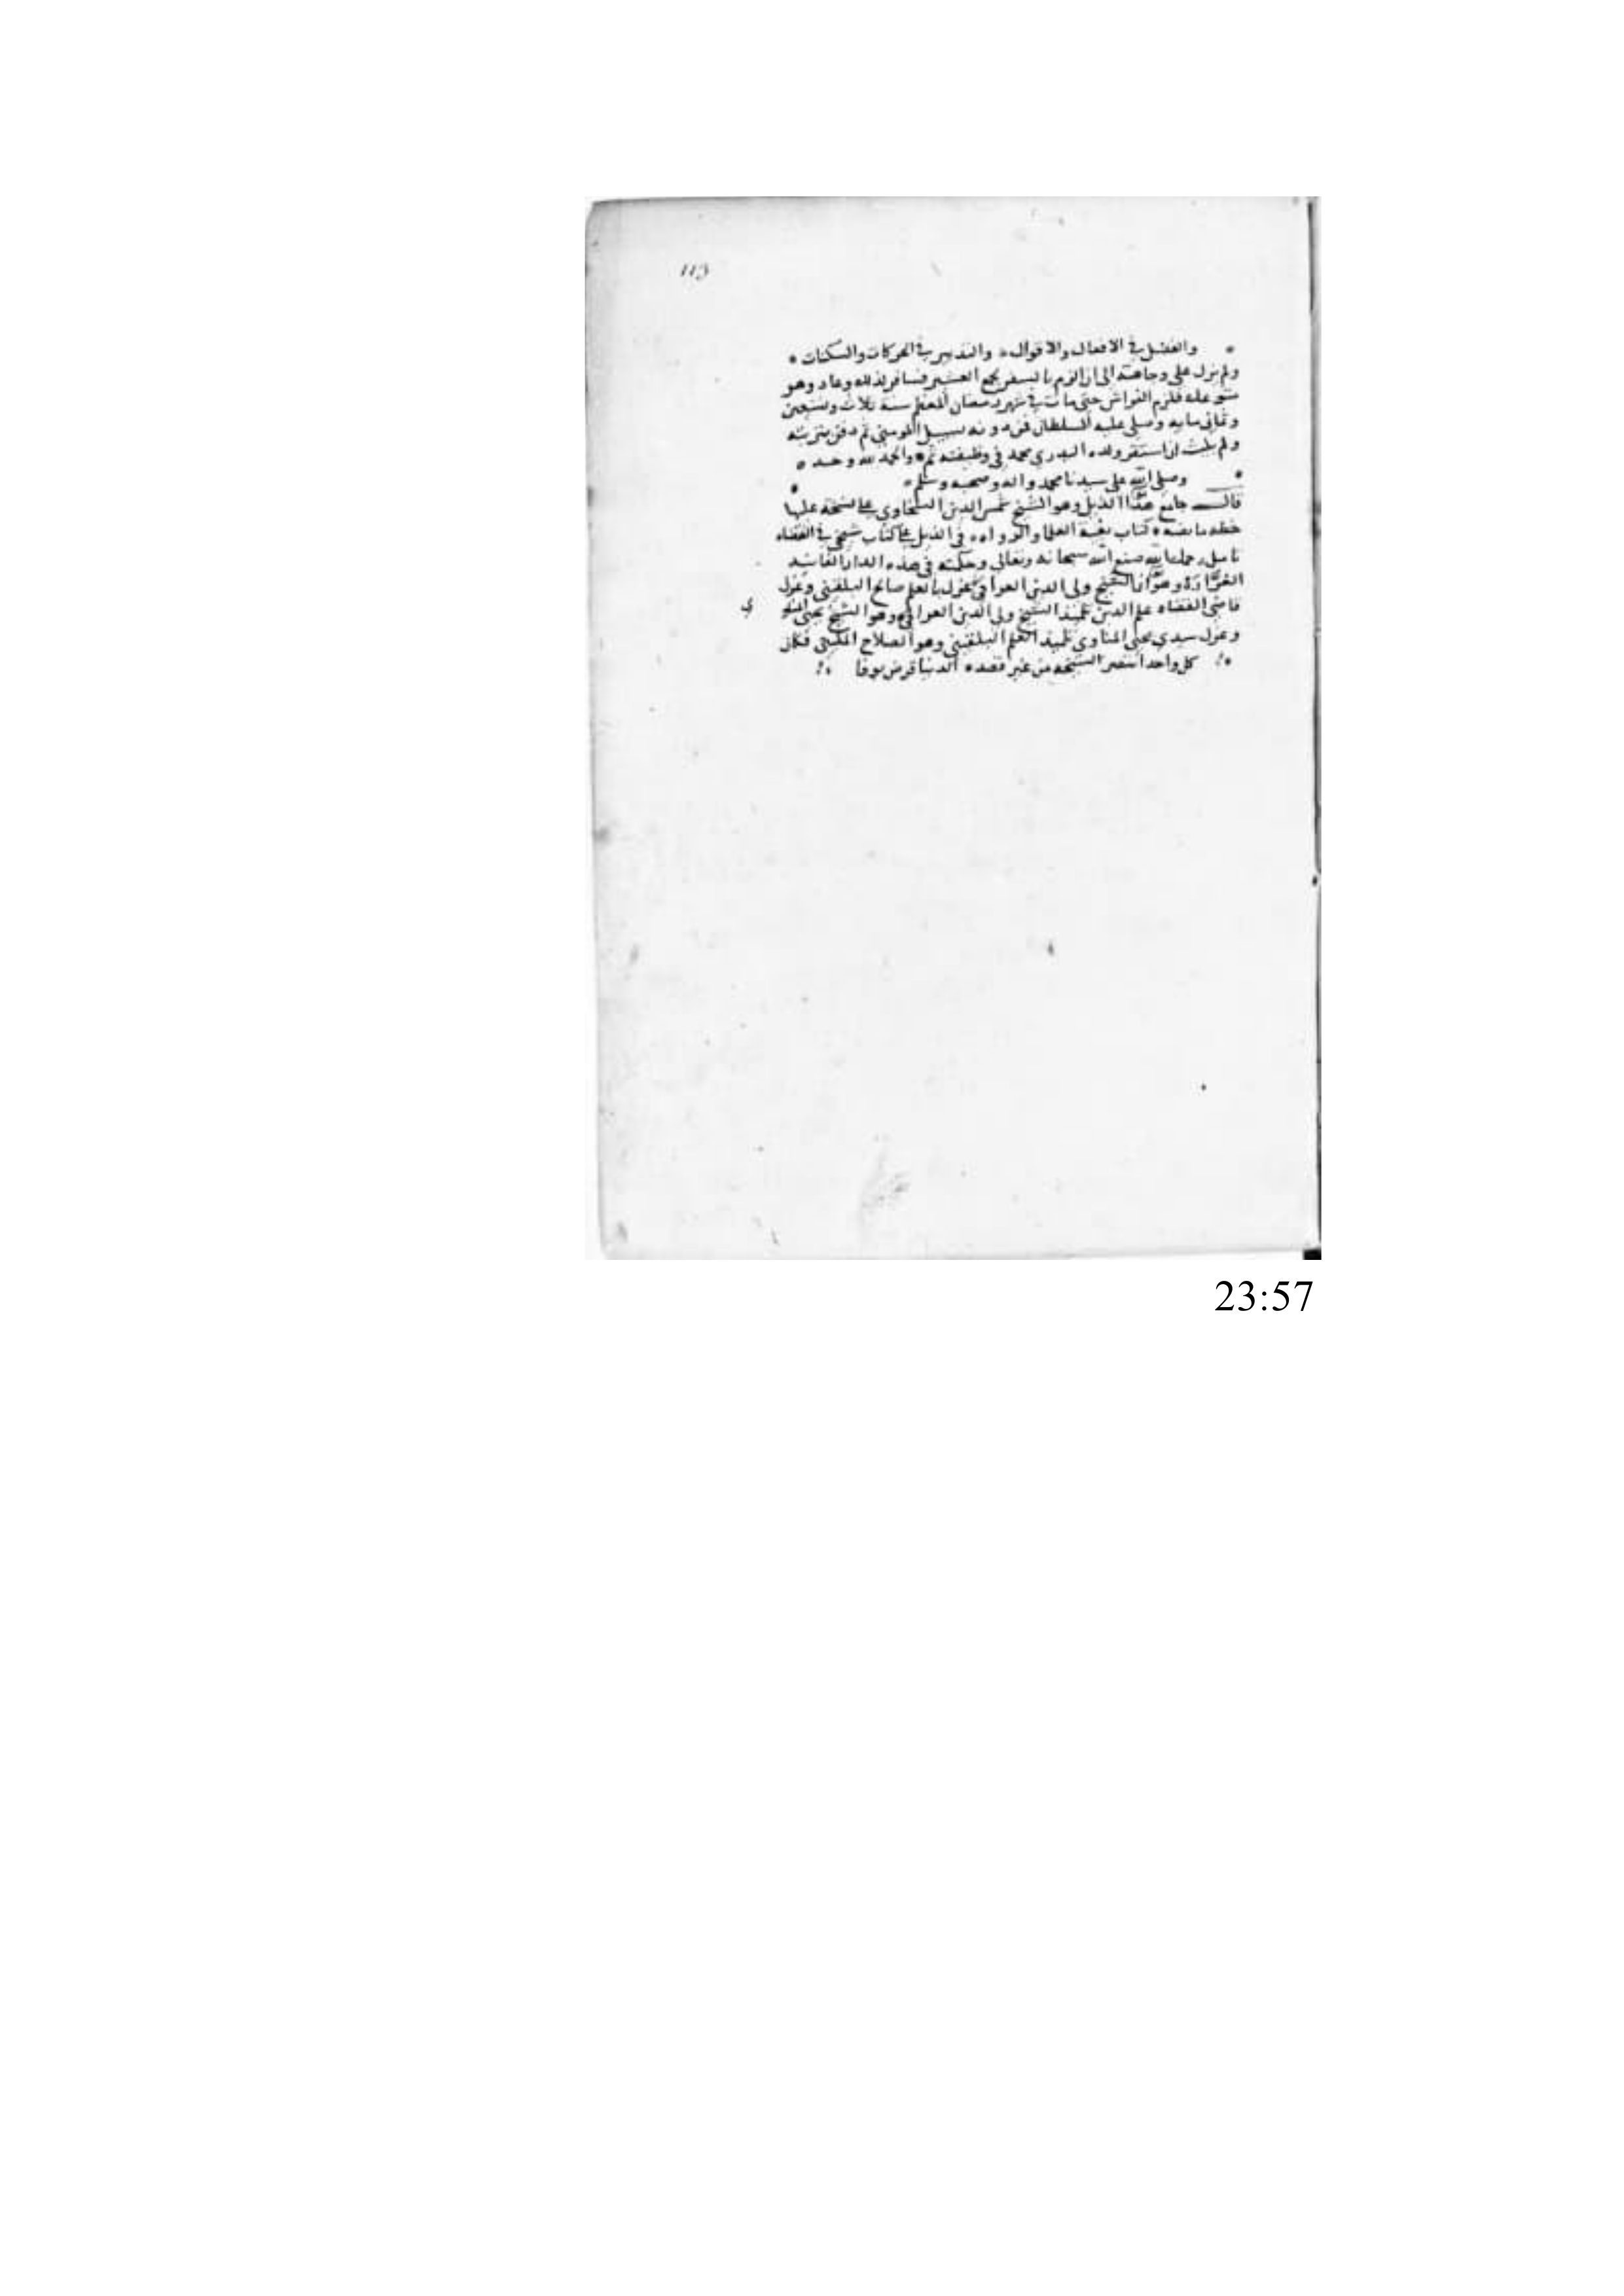 113
والفضل في الافعال والاقوال والتدبير في الحركات والسكنات
ولم يزل على وجاهته الى ان الزم بالسفر لجمع العشير فسافر لذلك وعاد وهو
متوعك فلزم الفراش حتى مات في شهر رمضان المعظم سنة ثلاث وتسعين
وثماني مايه وصلى عليه السلطان فمن دونه بسبيل المومني ثم دفن بتربته
ولم يلبث ان استقر ولده البدري محمد في وظيفته تم والحمد لله وحده
وصلى الله على سيدنا محمد واله وصحبه وسلم
قال جامع هذا الذيل وهو الشيخ شمس الدين السخاوي على نسخة عليها
خطه ما نصه كتاب بغية العلما والرواه في الذيل على كتاب شيخي في القضاه
تامل رحمك الله صنع الله سبحانه وتعالى وحكمته في هذه الدار الفانيه
الغرارة وهو ان الشيخ ولي الدين العراقي عزل بالعلم صالح البلقيني وعزل
قاضي القضاه علم الدين تلميذ الشيخ ولي الدين العراقي وهو الشيخ يحيى المناو
ي
وعزل سيدي يحيى المناوي تلميذ العلم البلقيني وهو الصلاح المكيني فكان
كل واحد انتصر لشيخه من غير قصده الدنيا قرض بوفا
23:57